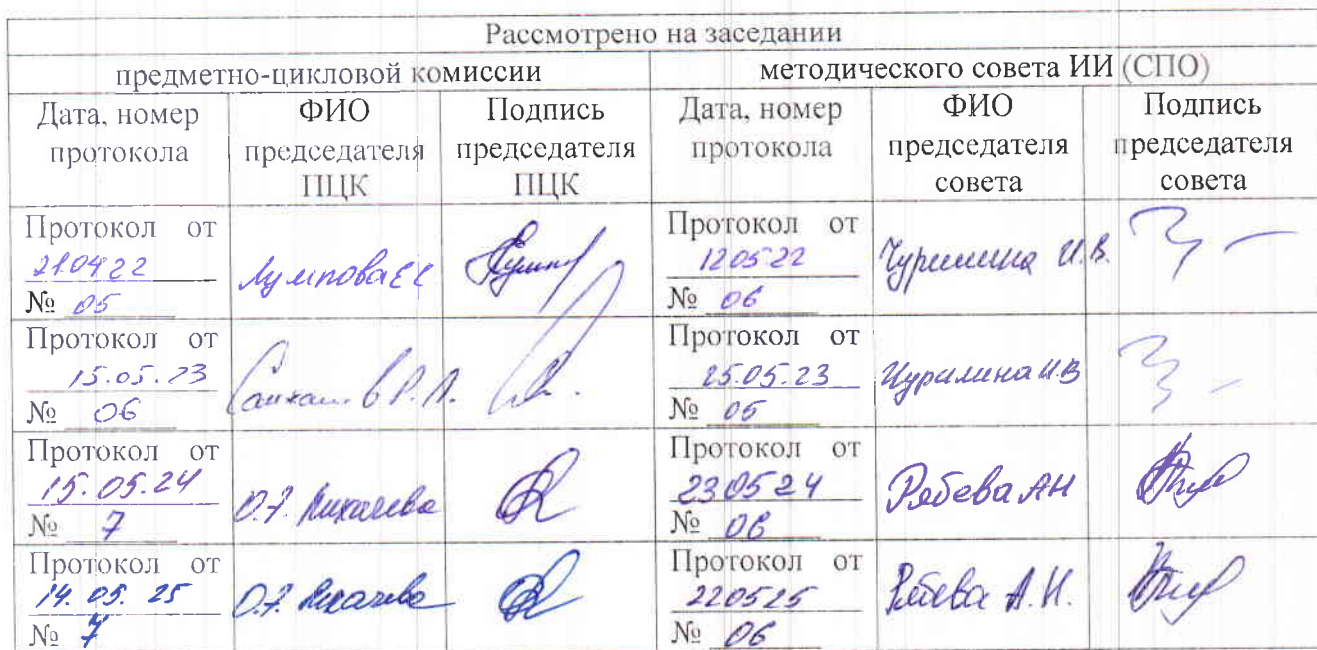 Рассмотрено на заседании
предметно-цикловой комиссии
методического совета ИИ (СПО)
Дата, номер
протокола
ФИО
председателя
ПЦК
Подпись
председателя
ПЦК
Дата, номер
протокола
ФИО
председателя
совета
Подпись
председателя
совета
Протокол от
21.04 22
№ 05
Протокол от
12 05 22
№ 06
Чурилина И.В.
Протокол от
15.05.23
№ 06
Протокол от
25.05.23
№ 05
Чурилина И.В
Протокол от
15.05.24
№ 7
О.Г. Лихачева
Протокол от
23 05 24
№ 06
Рябева АН
Протокол от
14. 05. 25
№ 7
О.Г. Лихачева
Протокол от
22 05 25
№ 06
Рябева А.Н.